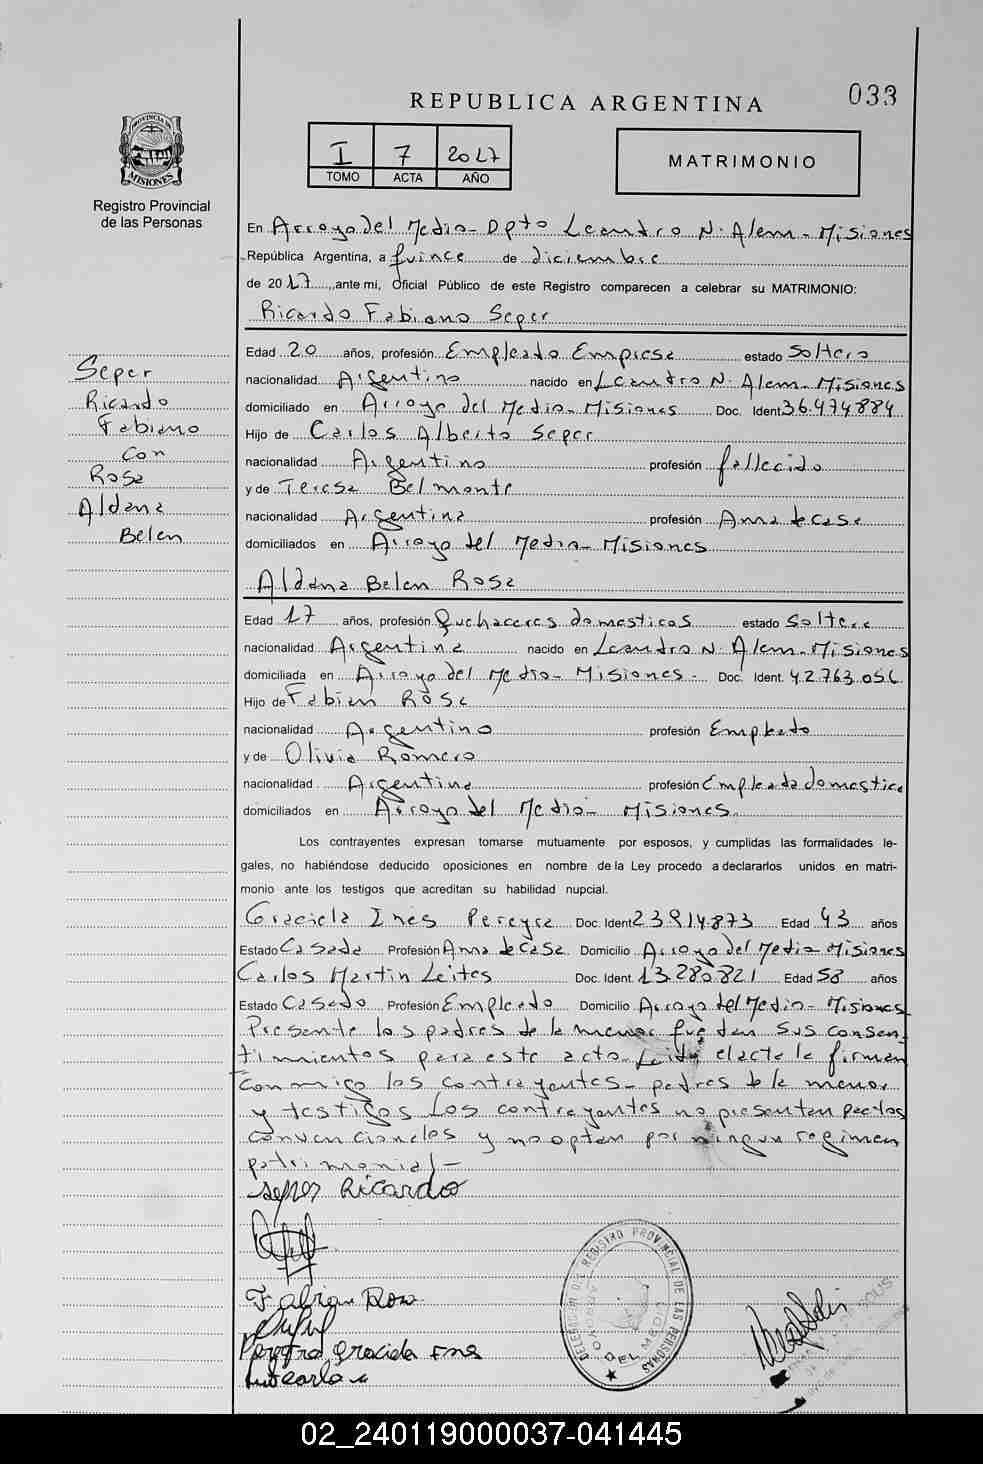 REPUBLICA ARGENTINA
033
PROVINCIA DE MISIONES
Registro Provincial
de las Personas
I 7 2017
TOMO ACTA AÑO
MATRIMONIO
En Arroyo del Medio - Dpto Leandro N. Alem - Misiones
República Argentina, a quince de diciembre
de 2017, ante mi, Oficial Público de este Registro comparecen a celebrar su MATRIMONIO:
Ricardo Fabiano Seper
Edad 20 años, profesión Empleado Empresa estado Soltero
nacionalidad Argentino nacido en Leandro N. Alem - Misiones
domiciliado en Arroyo del Medio - Misiones Doc. Ident 36.474.884
Hijo de Carlos Alberto Seper
nacionalidad Argentino profesión fallecido
y de Teresa Belmonte
nacionalidad Argentina profesión Ama de casa
domiciliados en Arroyo del Medio - Misiones
Seper
Ricardo
Fabiano
Con
Rosa
Aldana
Belen
Aldana Belen Rosa
Edad 17 años, profesión Quehaceres domesticos estado Soltera
nacionalidad Argentina nacido en Leandro N. Alem - Misiones
domiciliada en Arroyo del Medio - Misiones - Doc. Ident. 42.763.056
Hijo de Fabian Rosa
nacionalidad Argentino profesión Empleado
y de Olivia Romero
nacionalidad Argentina profesión Empleada domestica
domiciliados en Arroyo del Medio - Misiones.
Los contrayentes expresan tomarse mutuamente por esposos, y cumplidas las formalidades le-
gales, no habiéndose deducido oposiciones en nombre de la Ley procedo a declararlos unidos en matri-
monio ante los testigos que acreditan su habilidad nupcial.
Graciela Ines Pereyra Doc. Ident 23.914.873 Edad 43 años
Estado Casada Profesión Ama de casa Domicilio Arroyo del Medio Misiones
Carlos Martin Leites Doc. Ident. 13.280.821 Edad 58 años
Estado Casado Profesión Empleado Domicilio Arroyo del Medio - Misiones
Presente los padres de la menor que dan sus consen
timientos para este acto - Leida el acta la firman
conmigo los contrayentes - padres de la menor
y testigos Los contrayentes no presentan pactos
convencionales y no optan por ningun regimen
patrimonial -
Seper Ricardo
Fabian Rosa
Pereyra Graciela Ines
DELEGACION DEL REGISTRO PROVINCIAL DE LAS PERSONAS
ARROYO DEL MEDIO
02_240119000037-041445